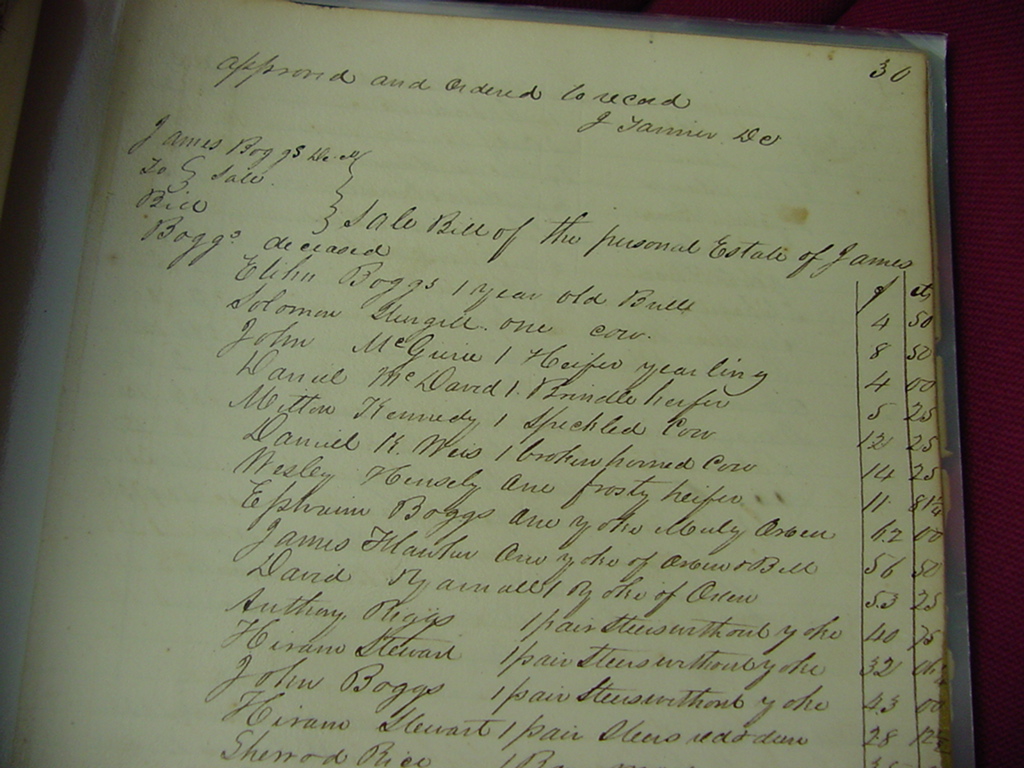 30
approved and ordered to record
J Tanner DC
James Boggs Decd
To } Sale
Bill } Sale Bill of the personal Estate of James
Boggs deceased $ cts
Elihu Boggs 1 year old Bull 4 50
Solomon Sturgill one cow 8 50
John McGuire 1 Heifer yearling 4 00
Daniel McDavid 1 Brindle heifer 5 25
Milton Kennedy 1 Speckled Cow 12 25
Daniel K. Weis 1 broken horned Cow 14 25
Wesley Hensely one frosty heifer 11 81¼
Ephraim Boggs one yoke Muly Oxen 62 00
James one yoke of Oxen & Bell 56 50
David 1 yoke of Oxen 53 25
Anthony Riggs 1 pair Steers without yoke 40 75
Hiram Stewart 1 pair Steers without yoke 32
John Boggs 1 pair Steers without yoke 43 00
Hiram Stewart 1 pair Steers red & dun 28 12½
Sherrod Rice 1